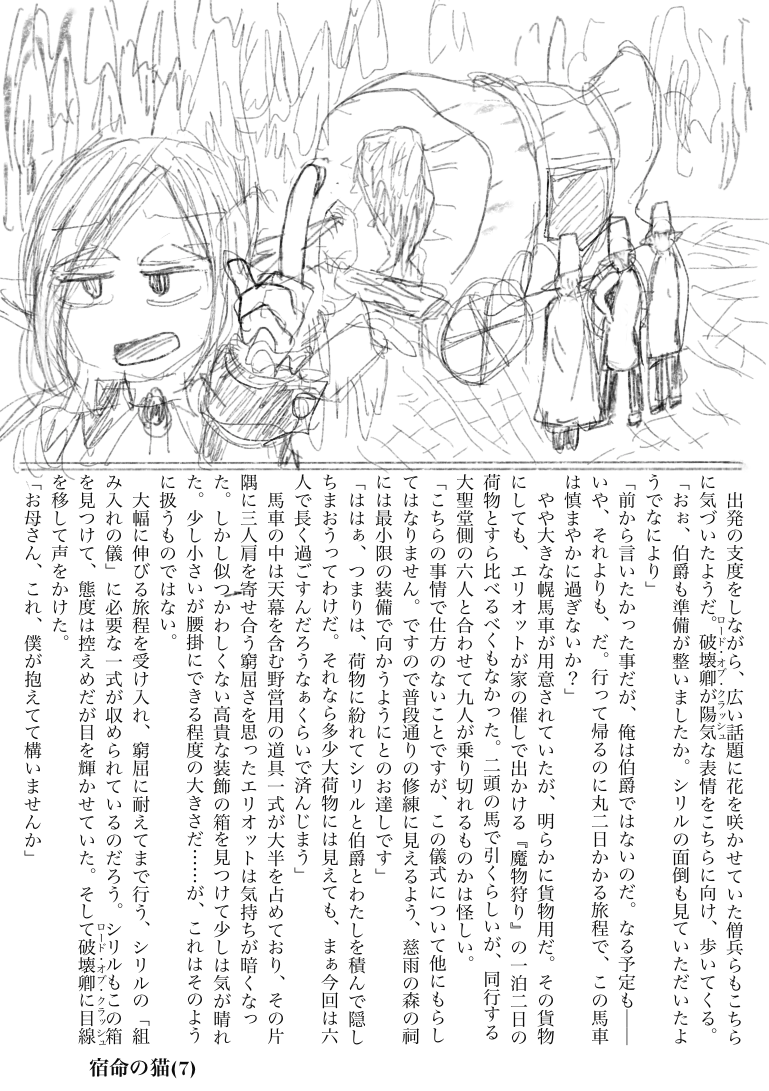 出発の支度をしながら、広い話題に花を咲かせていた僧兵らもこちら
に気づいたようだ。破壊卿が陽気な表情をこちらに向け、歩いてくる。
ロード・オブ・クラッシュ
「おぉ、伯爵も準備が整いましたか。シリルの面倒も見ていただいたよ
うでなにより」
「前から言いたかった事だが、俺は伯爵ではないのだ。なる予定も――
いや、それよりも、だ。行って帰るのに丸二日かかる旅程で、この馬車
は慎まやかに過ぎないか？」
やや大きな幌馬車が用意されていたが、明らかに貨物用だ。その貨物
にしても、エリオットが家の催しで出かける『魔物狩り』の一泊二日の
荷物とすら比べるべくもなかった。二頭の馬で引くらしいが、同行する
大聖堂側の六人と合わせて九人が乗り切れるものかは怪しい。
「こちらの事情で仕方のないことですが、この儀式について他にもらし
てはなりません。ですので普段通りの修練に見えるよう、慈雨の森の祠
には最小限の装備で向かうようにとのお達しです」
「ははぁ、つまりは、荷物に紛れてシリルと伯爵とわたしを積んで隠し
ちまおうってわけだ。それなら多少大荷物には見えても、まぁ今回は六
人で長く過ごすんだろうなぁくらいで済んじまう」
馬車の中は天幕を含む野営用の道具一式が大半を占めており、その片
隅に三人肩を寄せ合う窮屈さを思ったエリオットは気持ちが暗くなっ
た。しかし似つかわしくない高貴な装飾の箱を見つけて少しは気が晴れ
た。少し小さいが腰掛にできる程度の大きさだ……が、これはそのよう
に扱うものではない。
大幅に伸びる旅程を受け入れ、窮屈に耐えてまで行う、シリルの「組
み入れの儀」に必要な一式が収められているのだろう。シリルもこの箱
を見つけて、態度は控えめだが目を輝かせていた。そして破壊卿に目線
ロード・オブ・クラッシュ
を移して声をかけた。
「お母さん、これ、僕が抱えてて構いませんか」
宿命の猫(7)